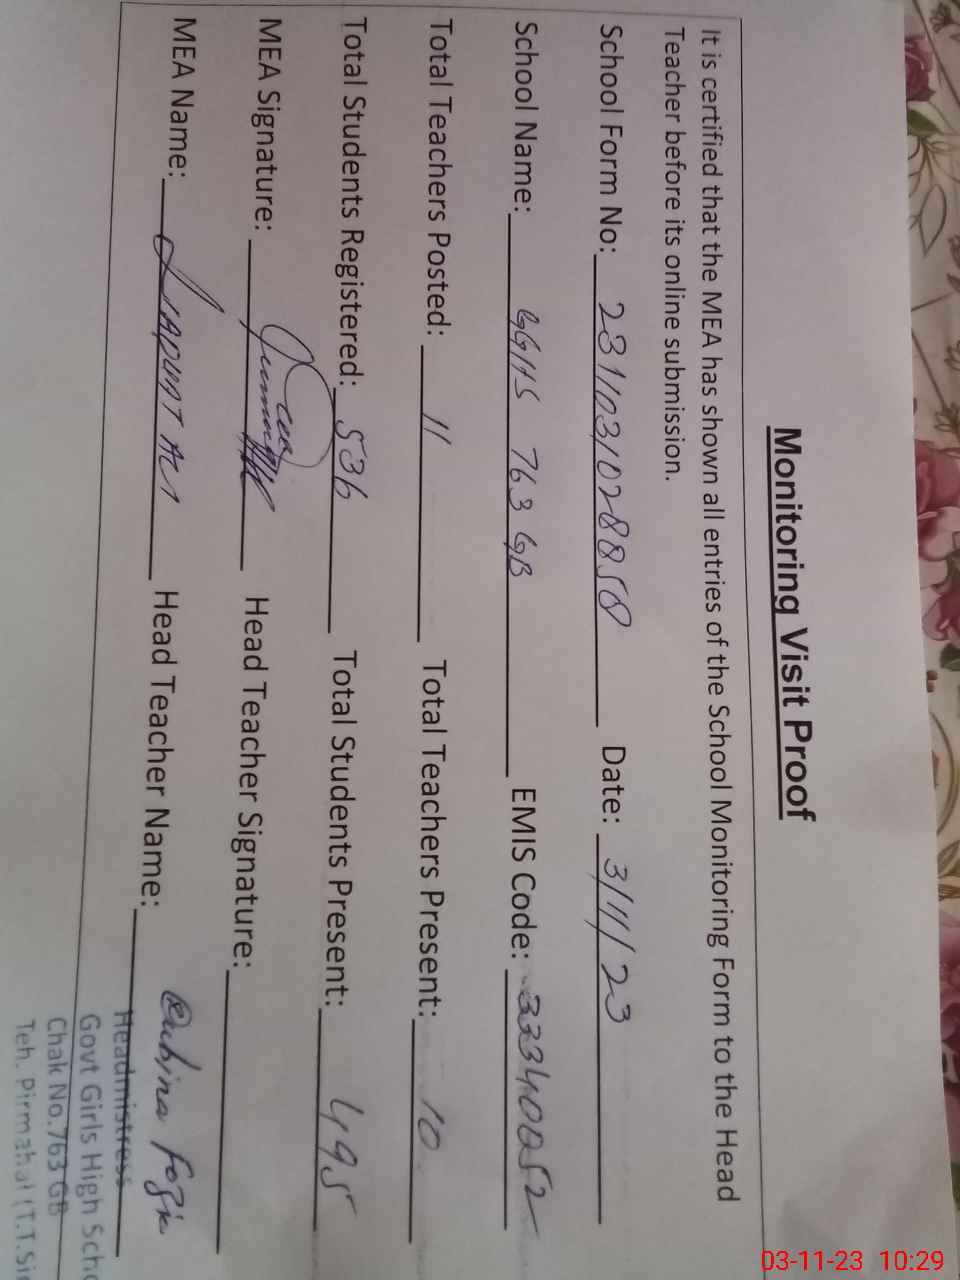 Monitoring Visit Proof
It is certified that the MEA has shown all entries of the School Monitoring Form to the Head
Teacher before its online submission.
School Form No: 23110310288858 Date: 3/11/23
School Name: GGHS 763 GB EMIS Code: 33340052
Total Teachers Posted: 11 Total Teachers Present: 10
Total Students Registered: 536 Total Students Present: 495
MEA Signature: Head Teacher Signature:
MEA Name: Head Teacher Name: Rubina
Headmistress
Govt Girls High Scho
Chak No.763 GB
Teh. Pirmahal (T.T.Si
03-11-23 10:29